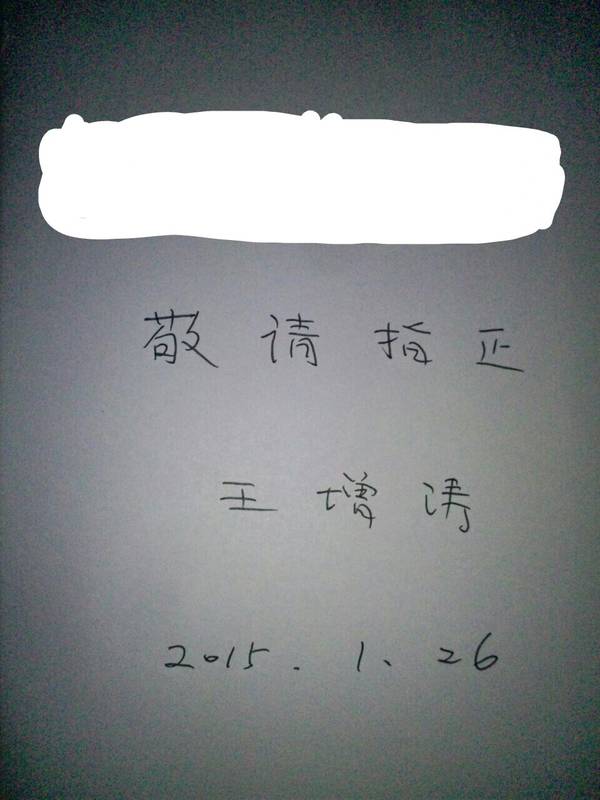 敬请指正
王增涛
2015.1、26